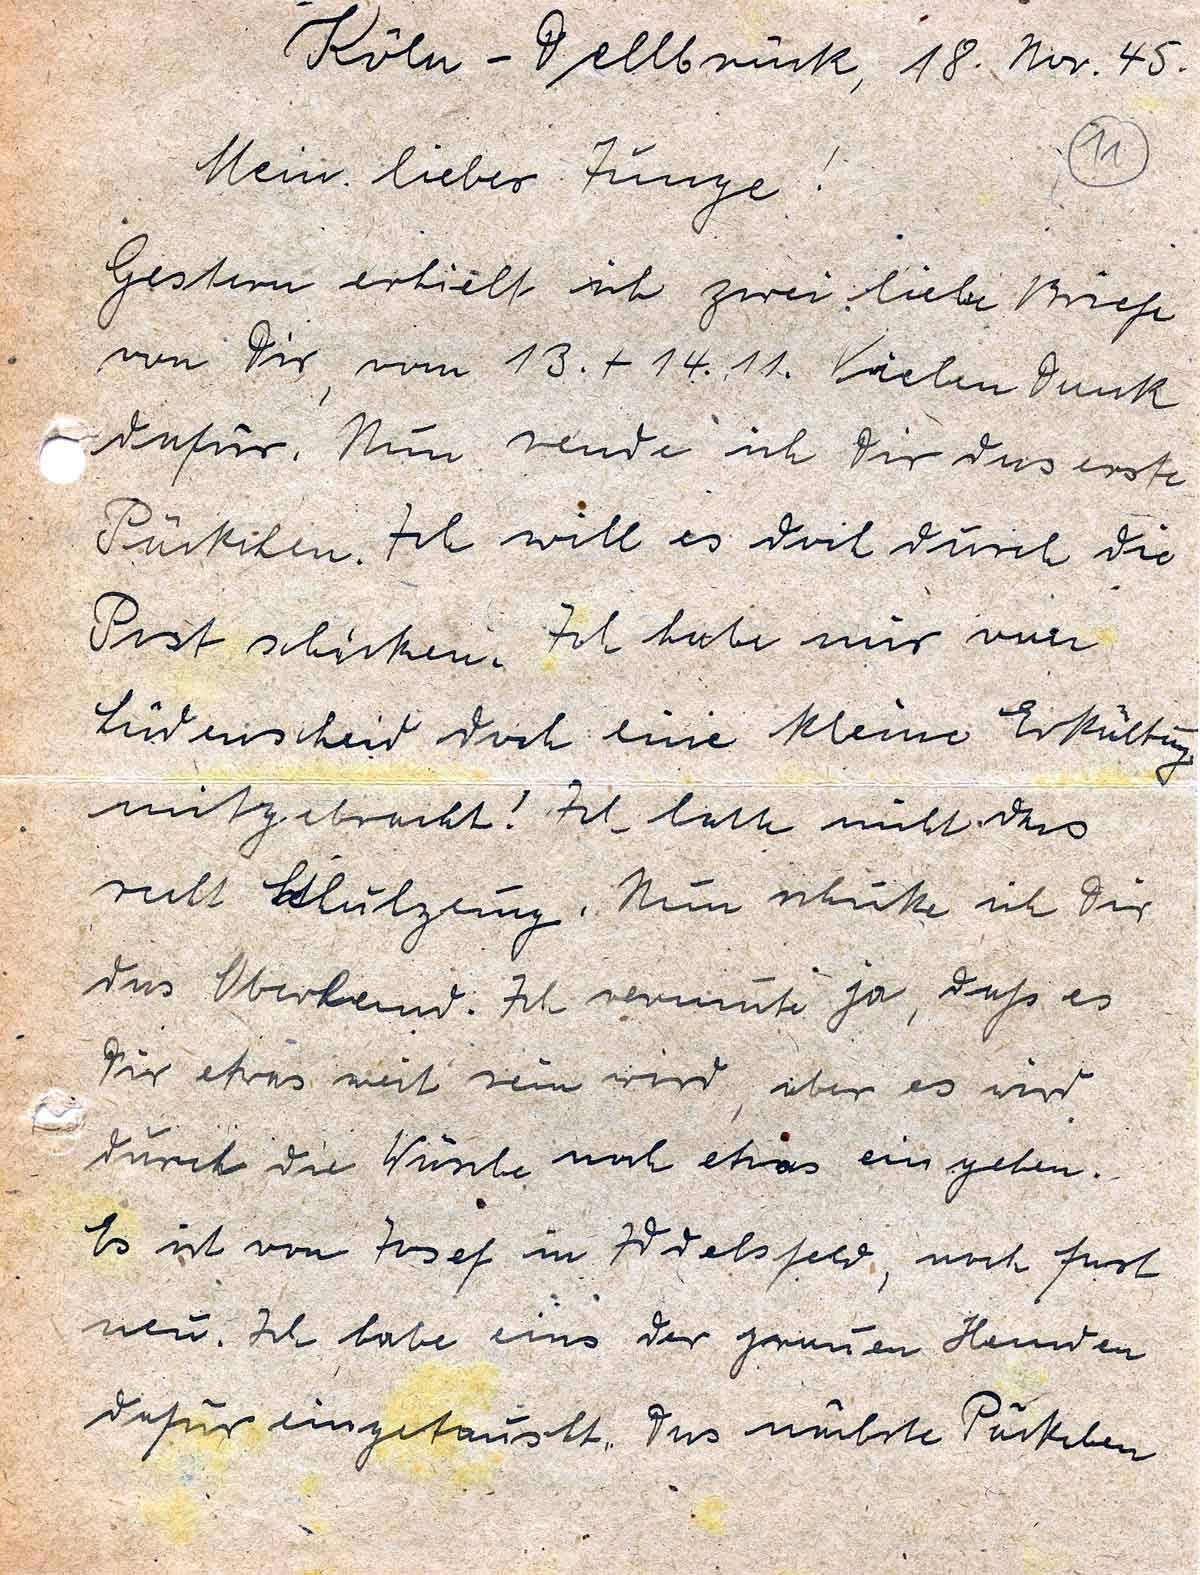 Köln-Dellbrück, 18. Nov. 45.
11
Mein lieber Junge!
Gestern erhielt ich zwei liebe Briefe
von Dir, vom 13. + 14. 11. Vielen Dank
dafür. Nun sende ich Dir das erste
Päckchen. Ich will es doch durch die
Post schicken. Ich habe mir von
Lüdenscheid doch eine kleine Erkältung
mitgebracht! Ich hatte nicht das
Nun schicke ich Dir
das Oberhemd. Ich vermute ja, daß es
Dir etwas weit sein wird, aber es wird
durch die Wäsche noch etwas eingehen.
Es ist von Josef in Iddelsfeld, noch fast
neu. Ich habe eins der grauen Hemden
dafür eingetauscht. Das nächste Päckchen